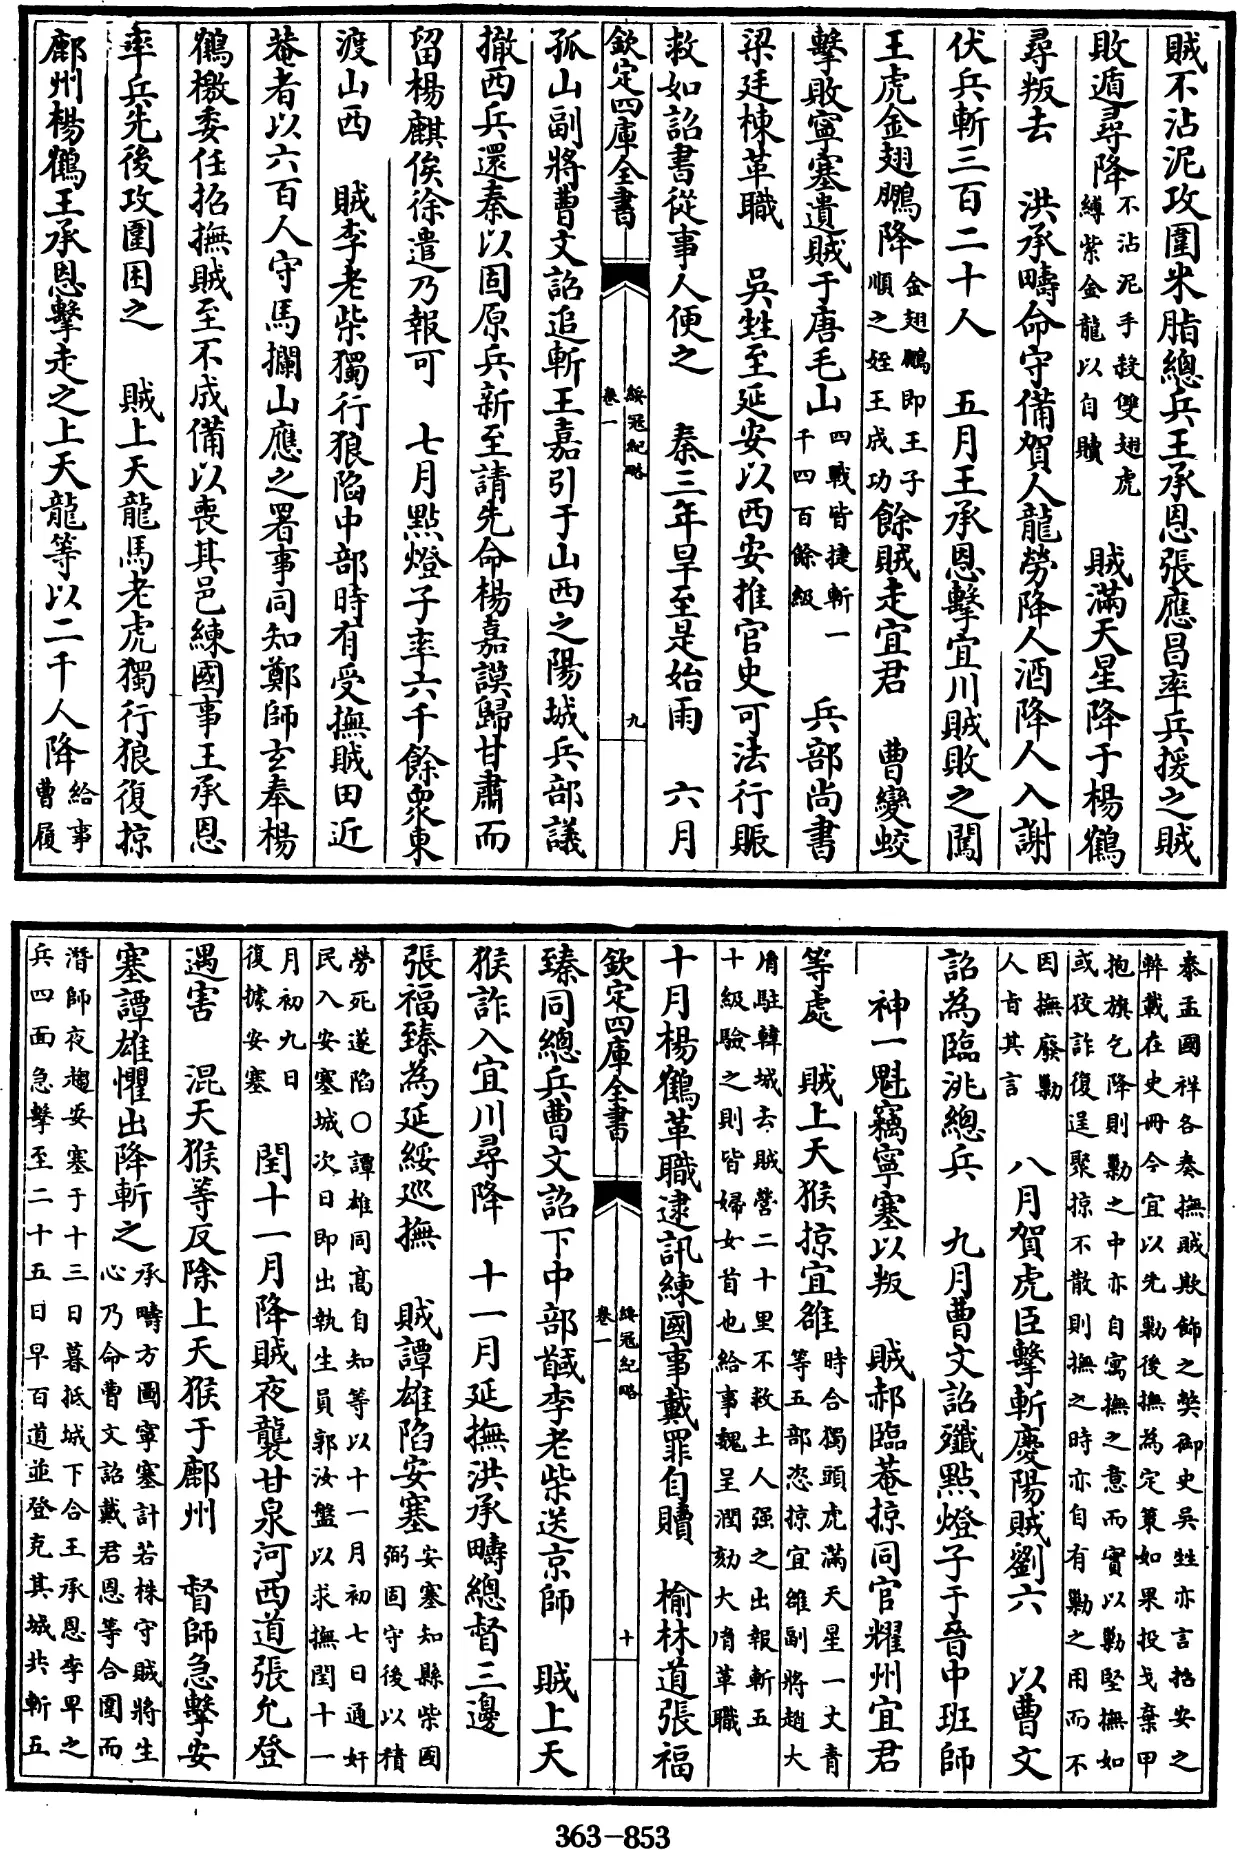 賊不沾泥攻圍米脂總兵王承恩張應昌率兵援之賊
敗遁尋降不沾泥手殺雙翅虎縛紫金龍以自贖　賊滿天星降于楊鶴
尋叛去　洪承疇命守備賀人龍勞降人酒降人入謝
伏兵斬三百二十人　五月王承恩擊宜川賊敗之闖
王虎金翅鵬降金翅鵬即王子順之姪王成功餘賊走宜君　曹變蛟
擊敗寧塞遺賊于唐毛山四戰皆捷斬一千四百餘級　兵部尚書
梁廷棟革職　吳甡至延安以西安推官史可法行賑
救如詔書從事人便之　秦三年旱至是始雨　六月
欽定四庫全書　綏冠紀略卷一　九
孤山副將曹文詔追斬王嘉引于山西之陽城兵部議
撤西兵還秦以固原兵新至請先命楊嘉謨歸甘肅而
留楊麒俟徐遣乃報可　七月點燈子率六千餘衆東
渡山西　賊李老柴獨行狼陷中部時有受撫賊田近
菴者以六百人守馬攔山應之署事同知鄭師玄奉楊
鶴檄委任招撫賊至不成備以喪其邑練國事王承恩
率兵先後攻圍困之　賊上天龍馬老虎獨行狼復掠
鄜州楊鶴王承恩擊走之上天龍等以二千人降給事曹履
泰孟國祥各奏撫賊欺飾之獘御史吳甡亦言招安之獘載在史冊今宜以先勦後撫為定策如果投戈棄甲
抱旗乞降則勦之中亦自寓撫之意而實以勦堅撫如或狡詐復逞聚掠不散則撫之時亦自有勦之用而不
因撫廢勦人旨其言　八月賀虎臣擊斬慶陽賊劉六　以曹文
詔為臨洮總兵　九月曹文詔殲點燈子于晉中班師
神一魁竊寧塞以叛　賊郝臨菴掠同官耀州宜君
等處　賊上天猴掠宜雒時合獨頭虎滿天星一丈青等五部恣掠宜雒副將趙大
胤駐韓城去賊營二十里不救土人强之出報斬五十級驗之則皆婦女首也給事魏呈潤劾大胤革職
十月楊鶴革職逮訊練國事戴罪自贖　榆林道張福
欽定四庫全書　綏冠紀略卷一　十
臻同總兵曹文詔下中部馘李老柴送京師　賊上天
猴詐入宜川尋降　十一月延撫洪承疇總督三邊
張福臻為延綏巡撫　賊譚雄陷安塞安塞知縣柴國弼固守後以積
勞死遂陷〇譚雄同髙自知等以十一月初七日通奸民入安塞城次日即出執生員郭汝盤以求撫閏十一
月初九日復據安塞　閏十一月降賊夜襲甘泉河西道張允登
遇害　混天猴等反除上天猴于鄜州　督師急擊安
塞譚雄懼出降斬之承疇方圖寧塞計若株守賊將生心乃命曹文詔戴君恩等合圍而
潛師夜趨安塞于十三日暮抵城下合王承恩李卑之兵四面急擊至二十五日早百道並登克其城共斬五
363-853